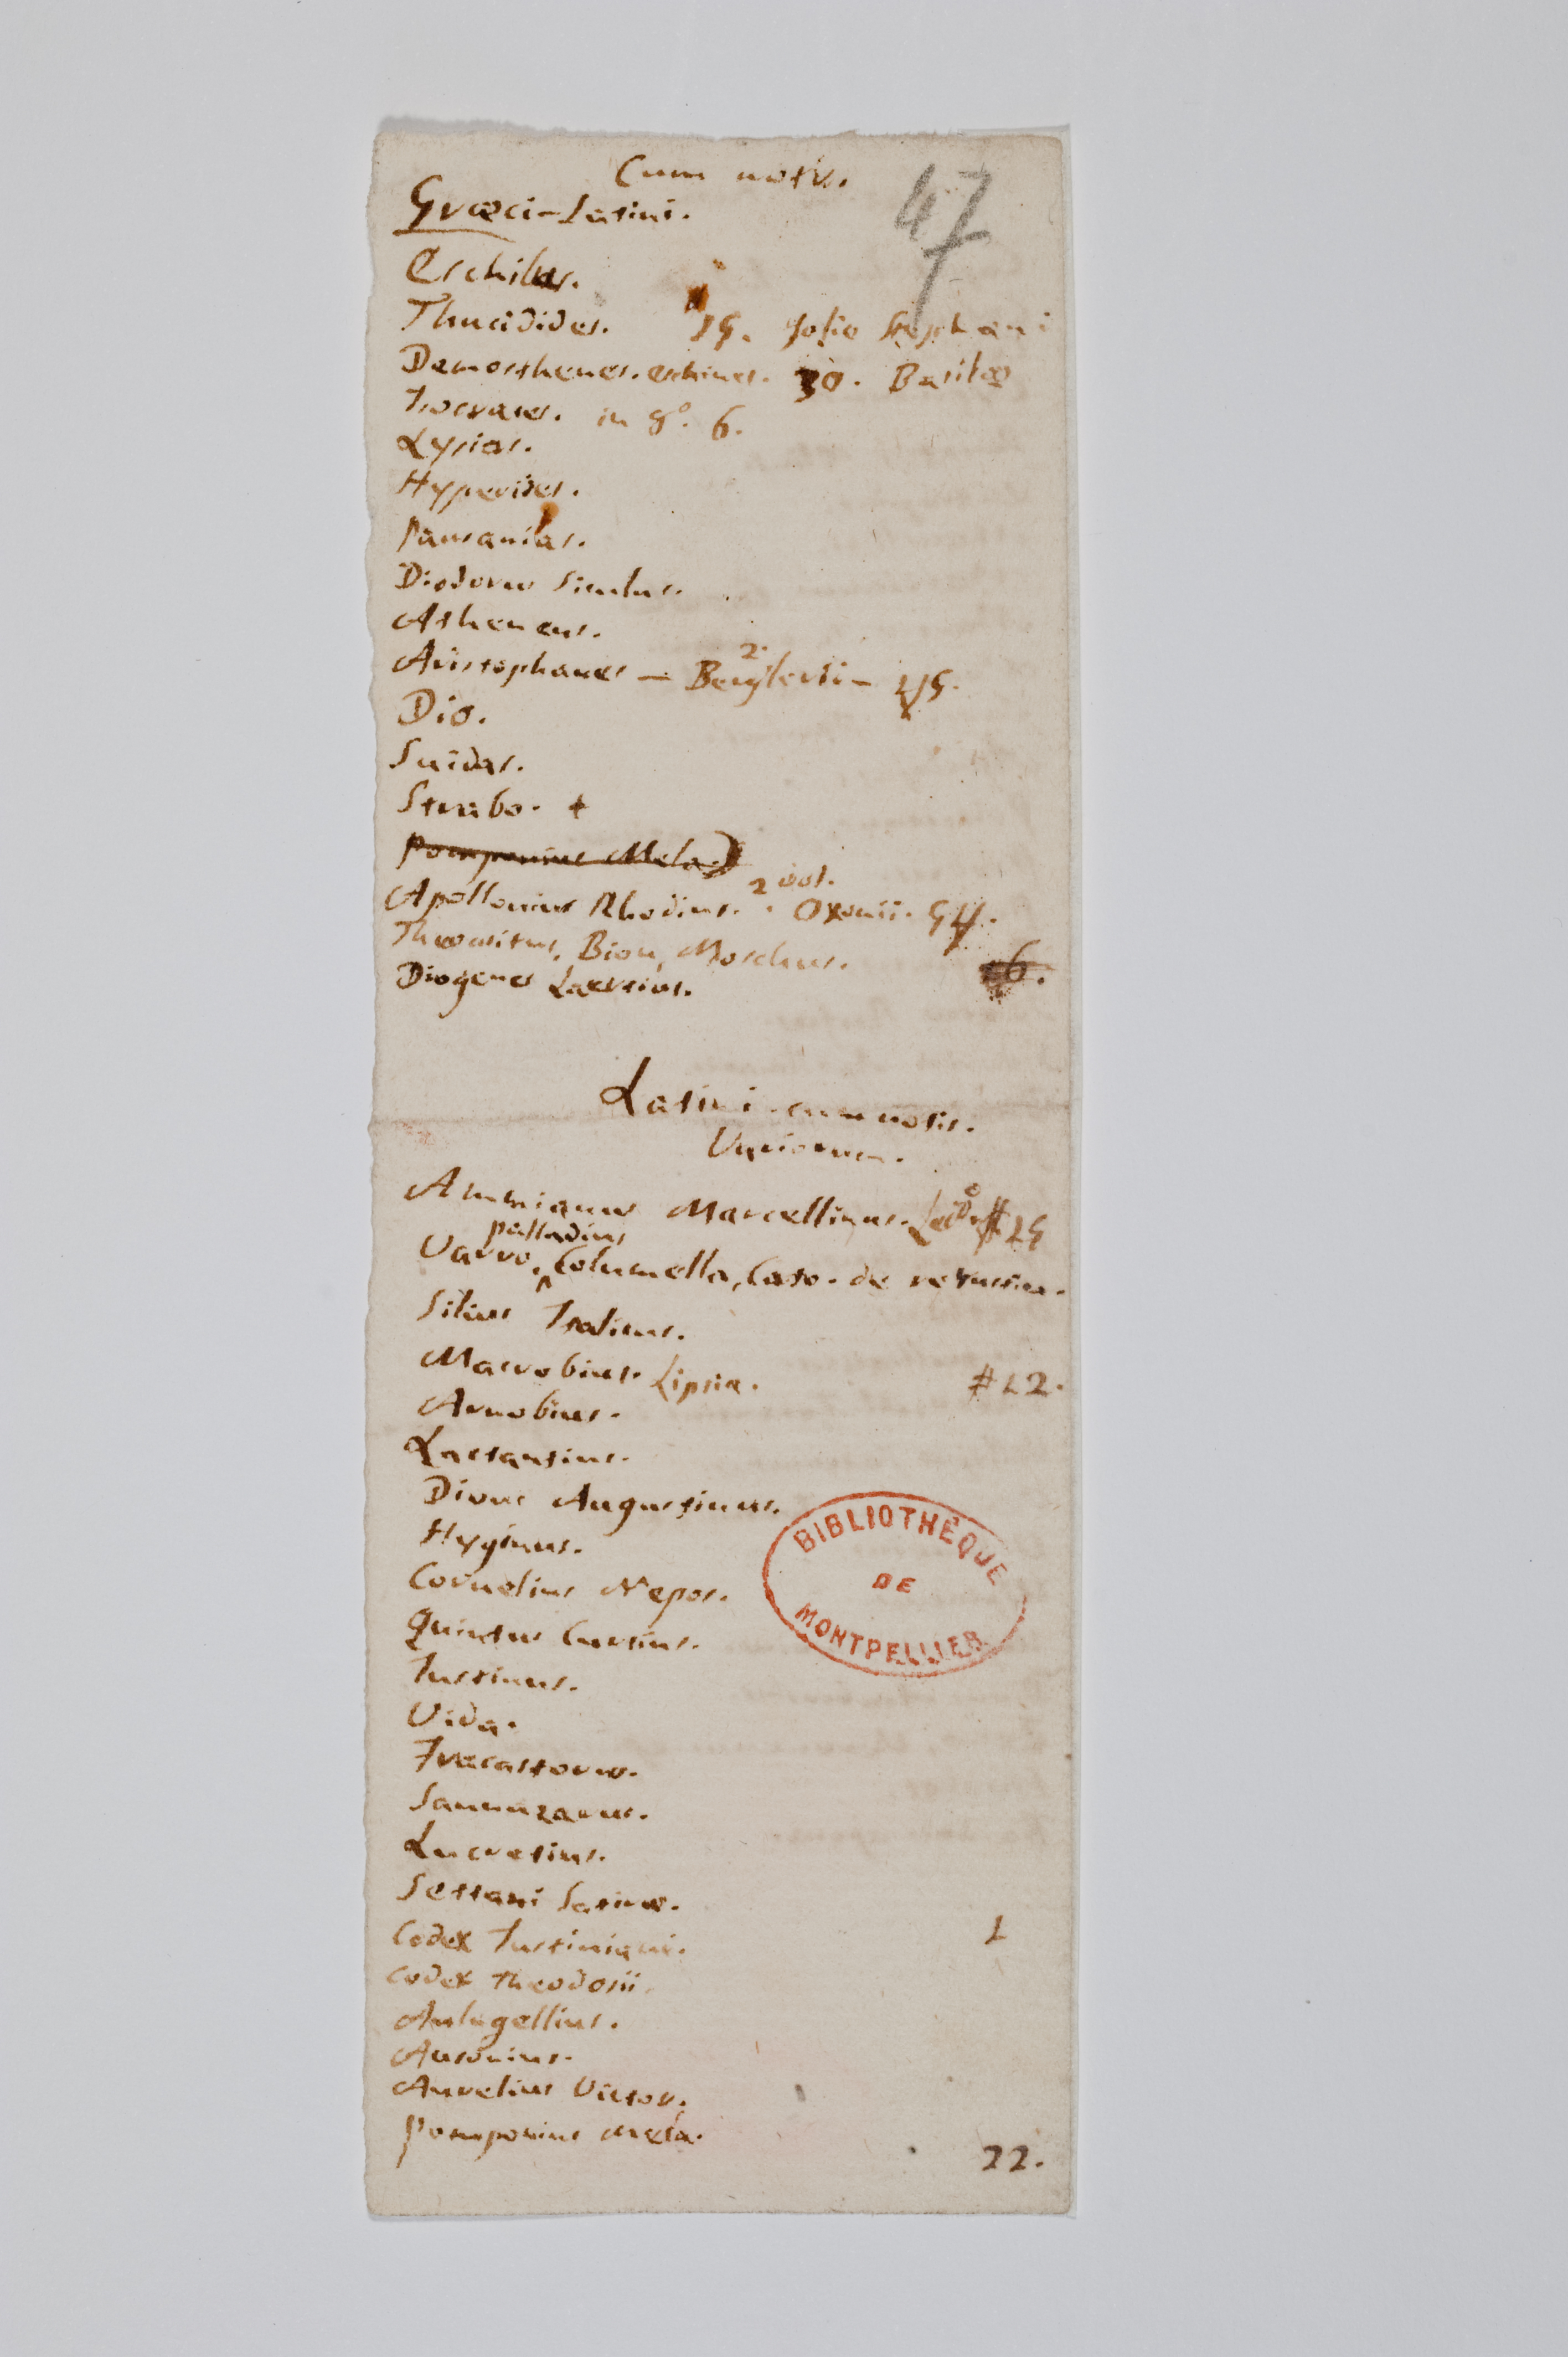 Cum notis.
47
Græci-Latini.
Eschilus.
Thucidides. 15. folio Stephani
Demosthenes. eschines. 30. Basileæ
Isocrates. in 8º. 6.
Lysias.
Hyperides.
Pausanias.
Diodorus Siculus.
Atheneus.
2.
Aristophanes — Bergleri —
Dio.
Suidas.
Strabo. +
Pomponius Mela.
2 vol.
Apollonius Rhodius. Oxonii.
Theocritus, Bion, Moschus.
Diogenes Laertius.
Latini cum notis.
Variorum.
Ammianus Marcellinus.
palladius
Varro, Columella, Cato. de re rustica.
Silius Italicus.
Macrobius. Lipsiæ. #22.
Arnobius.
Lactantius.
Divus Augustinus.
Hyginus.
Cornelius Nepos.
Quintus Curtius.
Justinus.
Vida.
Fracastorus.
Sannazarus.
Lucretius.
Settani Satiræ.
Codex Justiniani.
Codex Theodosii.
Aulugellius.
Ausonius.
Aurelius Victor.
Pomponius Mela.
22.
BIBLIOTHÈQUE
DE
MONTPELLIER